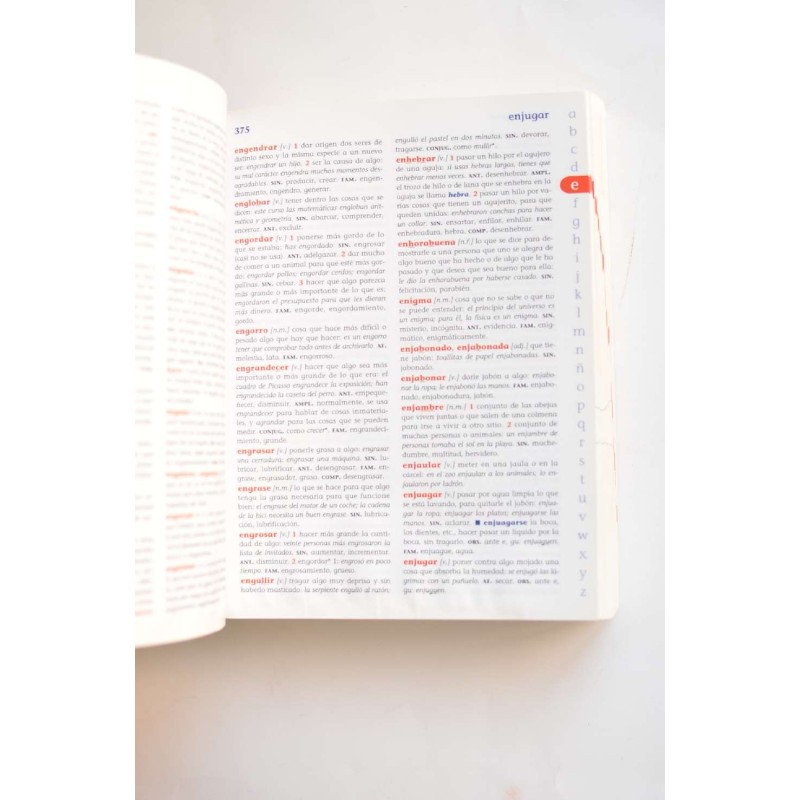 375
enjugar
engendrar [v.] 1 dar origen dos seres de
distinto sexo y la misma especie a un nuevo
ser: engendrar un hijo. 2 ser la causa de algo:
su mal carácter engendra muchos momentos des-
agradables. SIN. producir, crear. FAM. engen-
dramiento, engendro, generar.
englobar [v.] tener dentro las cosas que se
dicen: este curso las matemáticas engloban arit-
mética y geometría. SIN. abarcar, comprender,
encerrar. ANT. excluir.
engordar [v.] 1 ponerse más gordo de lo
que se estaba: has engordado. SIN. engrosar
(casi no se usa). ANT. adelgazar. 2 dar mucho
de comer a un animal para que esté más gor-
do: engordar pollos; engordar cerdos; engordar
gallinas. SIN. cebar. 3 hacer que algo parezca
más grande o más importante de lo que es:
engordaron el presupuesto para que les dieran
más dinero. FAM. engorde, engordamiento,
gordo.
engorro [n.m.] cosa que hace más difícil o
pesado algo que hay que hacer: es un engorro
tener que comprobar todo antes de archivarlo. AF.
molestia, lata. FAM. engorroso.
engrandecer [v.] hacer que algo sea más
importante o más grande de lo que era: el
cuadro de Picasso engrandece la exposición; han
engrandecido la caseta del perro. ANT. empeque-
ñecer, disminuir. AMPL. normalmente, se usa
engrandecer para hablar de cosas inmateria-
les, y agrandar para las cosas que se pueden
medir. CONJUG. como crecer*. FAM. engrandeci-
miento, grande.
engrasar [v.] ponerle grasa a algo: engrasar
una cerradura; engrasar una máquina. SIN. lu-
bricar, lubrificar. ANT. desengrasar. FAM. en-
grase, engrasador, grasa. COMP. desengrasar.
engrase [n.m.] lo que se hace para que algo
tenga la grasa necesaria para que funcione
bien: el engrase del motor de un coche; la cadena
de la bici necesita un buen engrase. SIN. lubrica-
ción, lubrificación.
engrosar [v.] 1 hacer más grande la canti-
dad de algo: veinte personas más engrosaron la
lista de invitados. SIN. aumentar, incrementar.
ANT. disminuir. 2 engordar* 1: engrosó en poco
tiempo. FAM. engrosamiento, grueso.
engullir [v.] tragar algo muy deprisa y sin
haberlo masticado: la serpiente engulló al ratón;
engulló el pastel en dos minutos. SIN. devorar,
tragarse. CONJUG. como mullir*.
enhebrar [v.] 1 pasar un hilo por el agujero
de una aguja: si usas hebras largas, tienes que
enhebrar menos veces. ANT. desenhebrar. AMPL.
el trozo de hilo o de lana que se enhebra en la
aguja se llama hebra. 2 pasar un hilo por va-
rias cosas que tienen un agujerito, para que
queden unidas: enhebraron conchas para hacer
un collar. SIN. ensartar, enfilar, enhilar. FAM.
enhebradura, hebra. COMP. desenhebrar.
enhorabuena [n.f.] lo que se dice para de-
mostrarle a una persona que uno se alegra de
algo bueno que ha hecho o de algo que le ha
pasado y que desea que sea bueno para ella:
le dio la enhorabuena por haberse casado. SIN.
felicitación, parabién.
enigma [n.m.] cosa que no se sabe o que no
se puede entender: el principio del universo es
un enigma; para él, la física es un enigma. SIN.
misterio, incógnita. ANT. evidencia. FAM. enig-
mático, enigmáticamente.
enjabonado, enjabonada [adj.] que tie-
ne jabón: toallitas de papel enjabonadas. SIN.
jabonado.
enjabonar [v.] darle jabón a algo: enjabo-
nar la ropa; le enjabonó las manos. FAM. enjabo-
nado, enjabonadura, jabón.
enjambre [n.m.] 1 conjunto de las abejas
que viven juntas o que salen de una colmena
para irse a vivir a otro sitio. 2 conjunto de
muchas personas o animales: un enjambre de
personas tomaba el sol en la playa. SIN. muche-
dumbre, multitud, hervidero.
enjaular [v.] meter en una jaula o en la
cárcel: en el zoo enjaulan a los animales; lo en-
jaularon por ladrón.
enjuagar [v.] pasar por agua limpia lo que
se está lavando, para quitarle el jabón: enjua-
gar la ropa; enjuagar los platos; enjuagarse las
manos. SIN. aclarar. ■ enjuagarse la boca,
los dientes, etc., hacer pasar un líquido por la
boca, sin tragarlo. OBS. ante e, gu: enjuaguen.
FAM. enjuague, agua.
enjugar [v.] poner contra algo mojado una
cosa que absorba la humedad: se enjugó las lá-
grimas con un pañuelo. AF. secar. OBS. ante e,
gu: enjuguen.
a
b
c
d
e
f
g
h
i
j
k
l
m
n
ñ
o
p
q
r
s
t
u
v
w
x
y
z